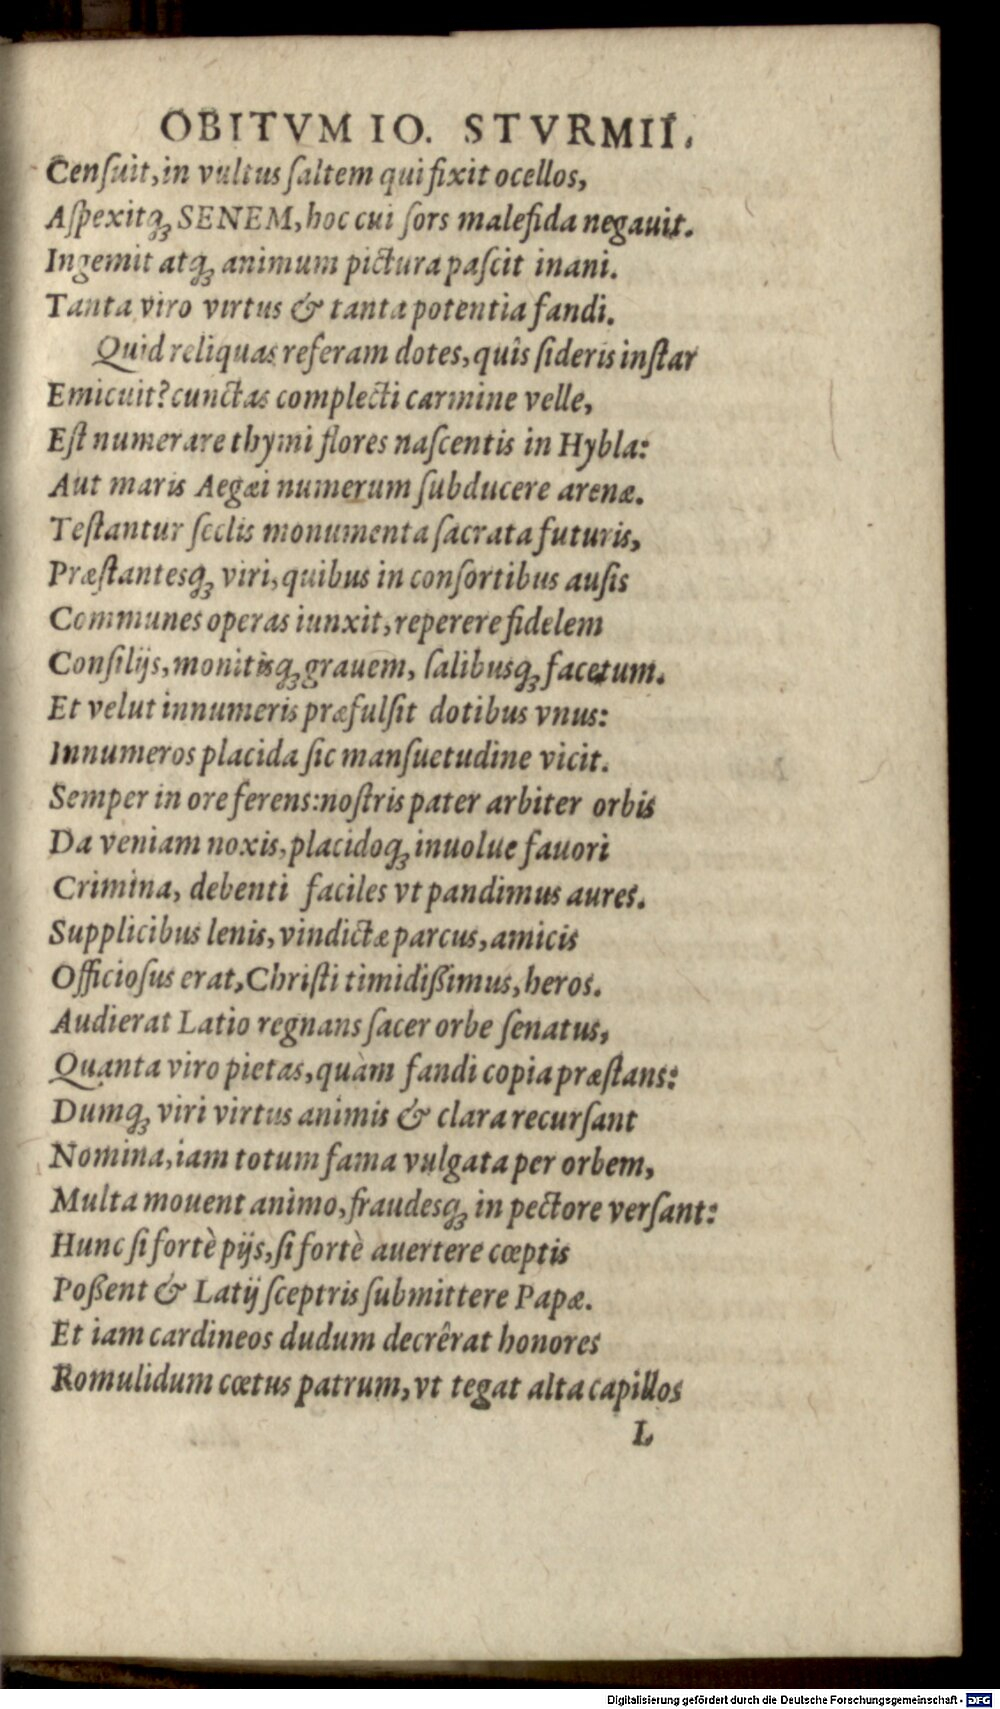 OBITVM IO. STVRMII.
Cenſuit, in vultus ſaltem qui fixit ocellos,
Aſpexitq́ꝫ SENEM, hoc cui ſors malefida negauit.
Ingemit atqꝫ animum pictura paſcit inani.
Tanta viro virtus & tanta potentia fandi.
Quid reliquas referam dotes, quîs ſideris inſtar
Emicuit? cunctas complecti carmine velle,
Eſt numerare thymi flores naſcentis in Hybla:
Aut maris Aegæi numerum ſubducere arenæ.
Teſtantur ſeclis monumenta ſacrata futuris,
Præſtantesqꝫ viri, quibus in conſortibus auſis
Communes operas iunxit, reperere fidelem
Conſilijs, monitisqꝫ grauem, ſalibusqꝫ facetum.
Et velut innumeris præfulſit dotibus vnus:
Innumeros placida ſic manſuetudine vicit.
Semper in ore ferens: noſtris pater arbiter orbis
Da veniam noxis, placidoqꝫ inuolue fauori
Crimina, debenti faciles vt pandimus aures.
Supplicibus lenis, vindictæ parcus, amicis
Officioſus erat, Chriſti timidißimus, heros.
Audierat Latio regnans ſacer orbe ſenatus,
Quanta viro pietas, quàm fandi copia præſtans:
Dumqꝫ viri virtus animis & clara recurſant
Nomina, iam totum fama vulgata per orbem,
Multa mouent animo, fraudesqꝫ in pectore verſant:
Hunc ſi fortè pijs, ſi fortè auertere cœptis
Poßent & Latij ſceptris ſubmittere Papæ.
Et iam cardineos dudum decrêrat honores
Romulidum cœtus patrum, vt tegat alta capillos
L
Digitalisierung gefördert durch die Deutsche Forschungsgemeinschaft - DFG